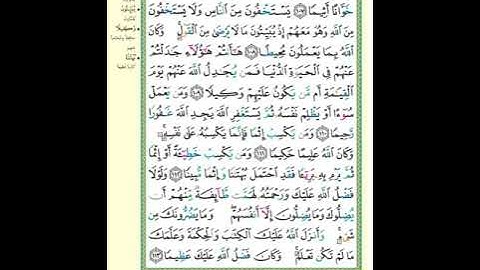 خَوَّانًا أَثِيمًا ١٠٧ يَسْتَخْفُونَ مِنَ ٱلنَّاسِ وَلَا يَسْتَخْفُونَ
مِنَ ٱللَّهِ وَهُوَ مَعَهُمْ إِذْ يُبَيِّتُونَ مَا لَا يَرْضَىٰ مِنَ ٱلْقَوْلِ ۚ وَكَانَ
ٱللَّهُ بِمَا يَعْمَلُونَ مُحِيطًا ١٠٨ هَٰٓأَنتُمْ هَٰٓؤُلَآءِ جَٰدَلْتُمْ
عَنْهُمْ فِى ٱلْحَيَوٰةِ ٱلدُّنْيَا فَمَن يُجَٰدِلُ ٱللَّهَ عَنْهُمْ يَوْمَ
ٱلْقِيَٰمَةِ أَم مَّن يَكُونُ عَلَيْهِمْ وَكِيلًا ١٠٩ وَمَن يَعْمَلْ
سُوٓءًا أَوْ يَظْلِمْ نَفْسَهُۥ ثُمَّ يَسْتَغْفِرِ ٱللَّهَ يَجِدِ ٱللَّهَ غَفُورًا
رَّحِيمًا ١١٠ وَمَن يَكْسِبْ إِثْمًا فَإِنَّمَا يَكْسِبُهُۥ عَلَىٰ نَفْسِهِۦ ۚ
وَكَانَ ٱللَّهُ عَلِيمًا حَكِيمًا ١١١ وَمَن يَكْسِبْ خَطِيٓـَٔةً أَوْ إِثْمًا
ثُمَّ يَرْمِ بِهِۦ بَرِيٓـًٔا فَقَدِ ٱحْتَمَلَ بُهْتَٰنًا وَإِثْمًا مُّبِينًا ١١٢ وَلَوْلَا
فَضْلُ ٱللَّهِ عَلَيْكَ وَرَحْمَتُهُۥ لَهَمَّت طَّآئِفَةٌ مِّنْهُمْ أَن
يُضِلُّوكَ وَمَا يُضِلُّونَ إِلَّآ أَنفُسَهُمْ ۖ وَمَا يَضُرُّونَكَ مِن
شَىْءٍ ۚ وَأَنزَلَ ٱللَّهُ عَلَيْكَ ٱلْكِتَٰبَ وَٱلْحِكْمَةَ وَعَلَّمَكَ
مَا لَمْ تَكُن تَعْلَمُ ۚ وَكَانَ فَضْلُ ٱللَّهِ عَلَيْكَ عَظِيمًا ١١٣